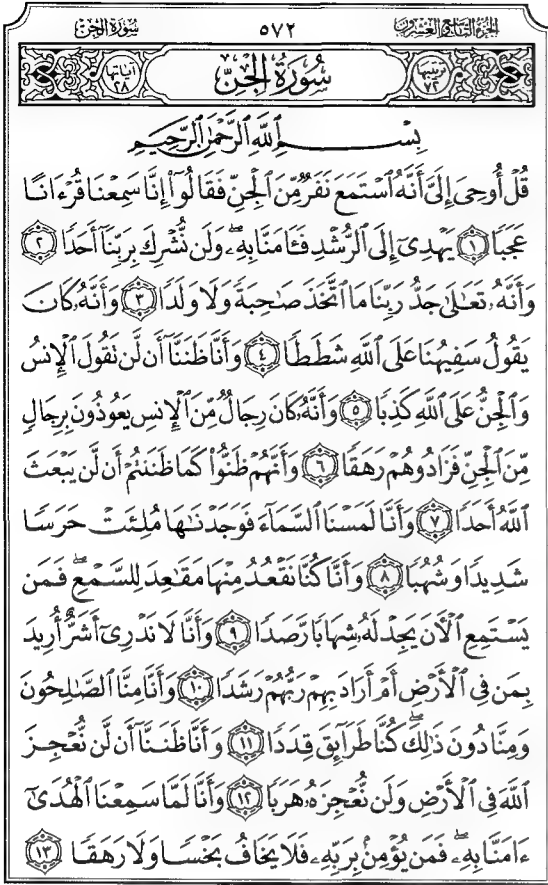 سُورَةُ الجِنّ ٥٧٢ الجُزْءُ التَّاسِعُ وَالعِشْرُون
ترتيبها ٧٢ سُورَةُ الجِنّ آياتها ٢٨
بِسْمِ ٱللَّهِ ٱلرَّحْمَٰنِ ٱلرَّحِيمِ
قُلْ أُوحِىَ إِلَىَّ أَنَّهُ ٱسْتَمَعَ نَفَرٌ مِّنَ ٱلْجِنِّ فَقَالُوٓا۟ إِنَّا سَمِعْنَا قُرْءَانًا
عَجَبًا ١ يَهْدِىٓ إِلَى ٱلرُّشْدِ فَـَٔامَنَّا بِهِۦ ۖ وَلَن نُّشْرِكَ بِرَبِّنَآ أَحَدًا ٢
وَأَنَّهُۥ تَعَٰلَىٰ جَدُّ رَبِّنَا مَا ٱتَّخَذَ صَٰحِبَةً وَلَا وَلَدًا ٣ وَأَنَّهُۥ كَانَ
يَقُولُ سَفِيهُنَا عَلَى ٱللَّهِ شَطَطًا ٤ وَأَنَّا ظَنَنَّآ أَن لَّن تَقُولَ ٱلْإِنسُ
وَٱلْجِنُّ عَلَى ٱللَّهِ كَذِبًا ٥ وَأَنَّهُۥ كَانَ رِجَالٌ مِّنَ ٱلْإِنسِ يَعُوذُونَ بِرِجَالٍ
مِّنَ ٱلْجِنِّ فَزَادُوهُمْ رَهَقًا ٦ وَأَنَّهُمْ ظَنُّوا۟ كَمَا ظَنَنتُمْ أَن لَّن يَبْعَثَ
ٱللَّهُ أَحَدًا ٧ وَأَنَّا لَمَسْنَا ٱلسَّمَآءَ فَوَجَدْنَٰهَا مُلِئَتْ حَرَسًا
شَدِيدًا وَشُهُبًا ٨ وَأَنَّا كُنَّا نَقْعُدُ مِنْهَا مَقَٰعِدَ لِلسَّمْعِ ۖ فَمَن
يَسْتَمِعِ ٱلْـَٔانَ يَجِدْ لَهُۥ شِهَابًا رَّصَدًا ٩ وَأَنَّا لَا نَدْرِىٓ أَشَرٌّ أُرِيدَ
بِمَن فِى ٱلْأَرْضِ أَمْ أَرَادَ بِهِمْ رَبُّهُمْ رَشَدًا ١٠ وَأَنَّا مِنَّا ٱلصَّٰلِحُونَ
وَمِنَّا دُونَ ذَٰلِكَ ۖ كُنَّا طَرَآئِقَ قِدَدًا ١١ وَأَنَّا ظَنَنَّآ أَن لَّن نُّعْجِزَ
ٱللَّهَ فِى ٱلْأَرْضِ وَلَن نُّعْجِزَهُۥ هَرَبًا ١٢ وَأَنَّا لَمَّا سَمِعْنَا ٱلْهُدَىٰٓ
ءَامَنَّا بِهِۦ ۖ فَمَن يُؤْمِنۢ بِرَبِّهِۦ فَلَا يَخَافُ بَخْسًا وَلَا رَهَقًا ١٣